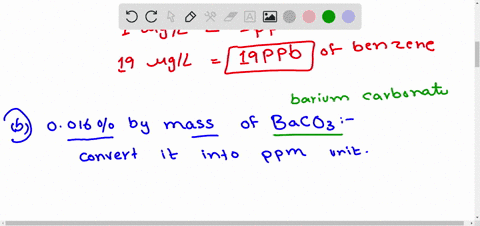 1 µg/L = 1 pp
19 µg/L = 19 PPb of benzene
barium carbonate
(b) 0.016% by mass of BaCO3 :-
convert it into ppm unit.